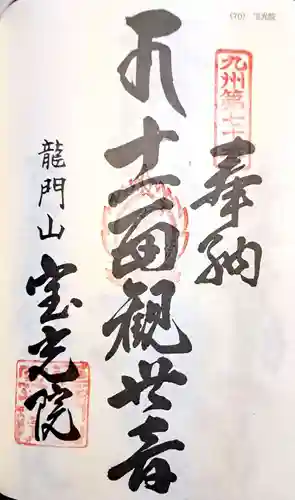 (70) 宝光院
九州第七十
奉納
十一面観世音
龍門山
宝光院